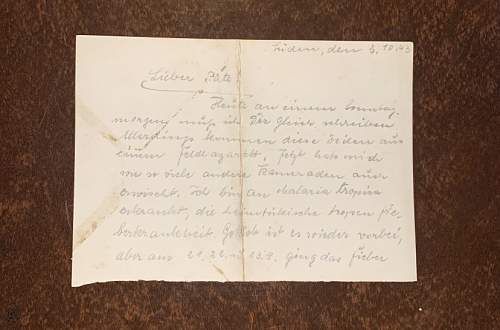 Süden, den 3.10.43
Lieber Päte
Heute an einem Sonntag-
morgen muß ich Dir gleich schreiben
Allerdings kommen diese Zeilen aus
einem Feldlazarett. Jetzt hats mich
wie so viele andere Kameraden auch
erwischt. Ich bin an Malaria tropica
erkrankt, die heimtükische tropen fie-
berkrankheit. Gottlob ist es wieder vorbei,
aber am 21, 22, u 23.9. ging das Fieber